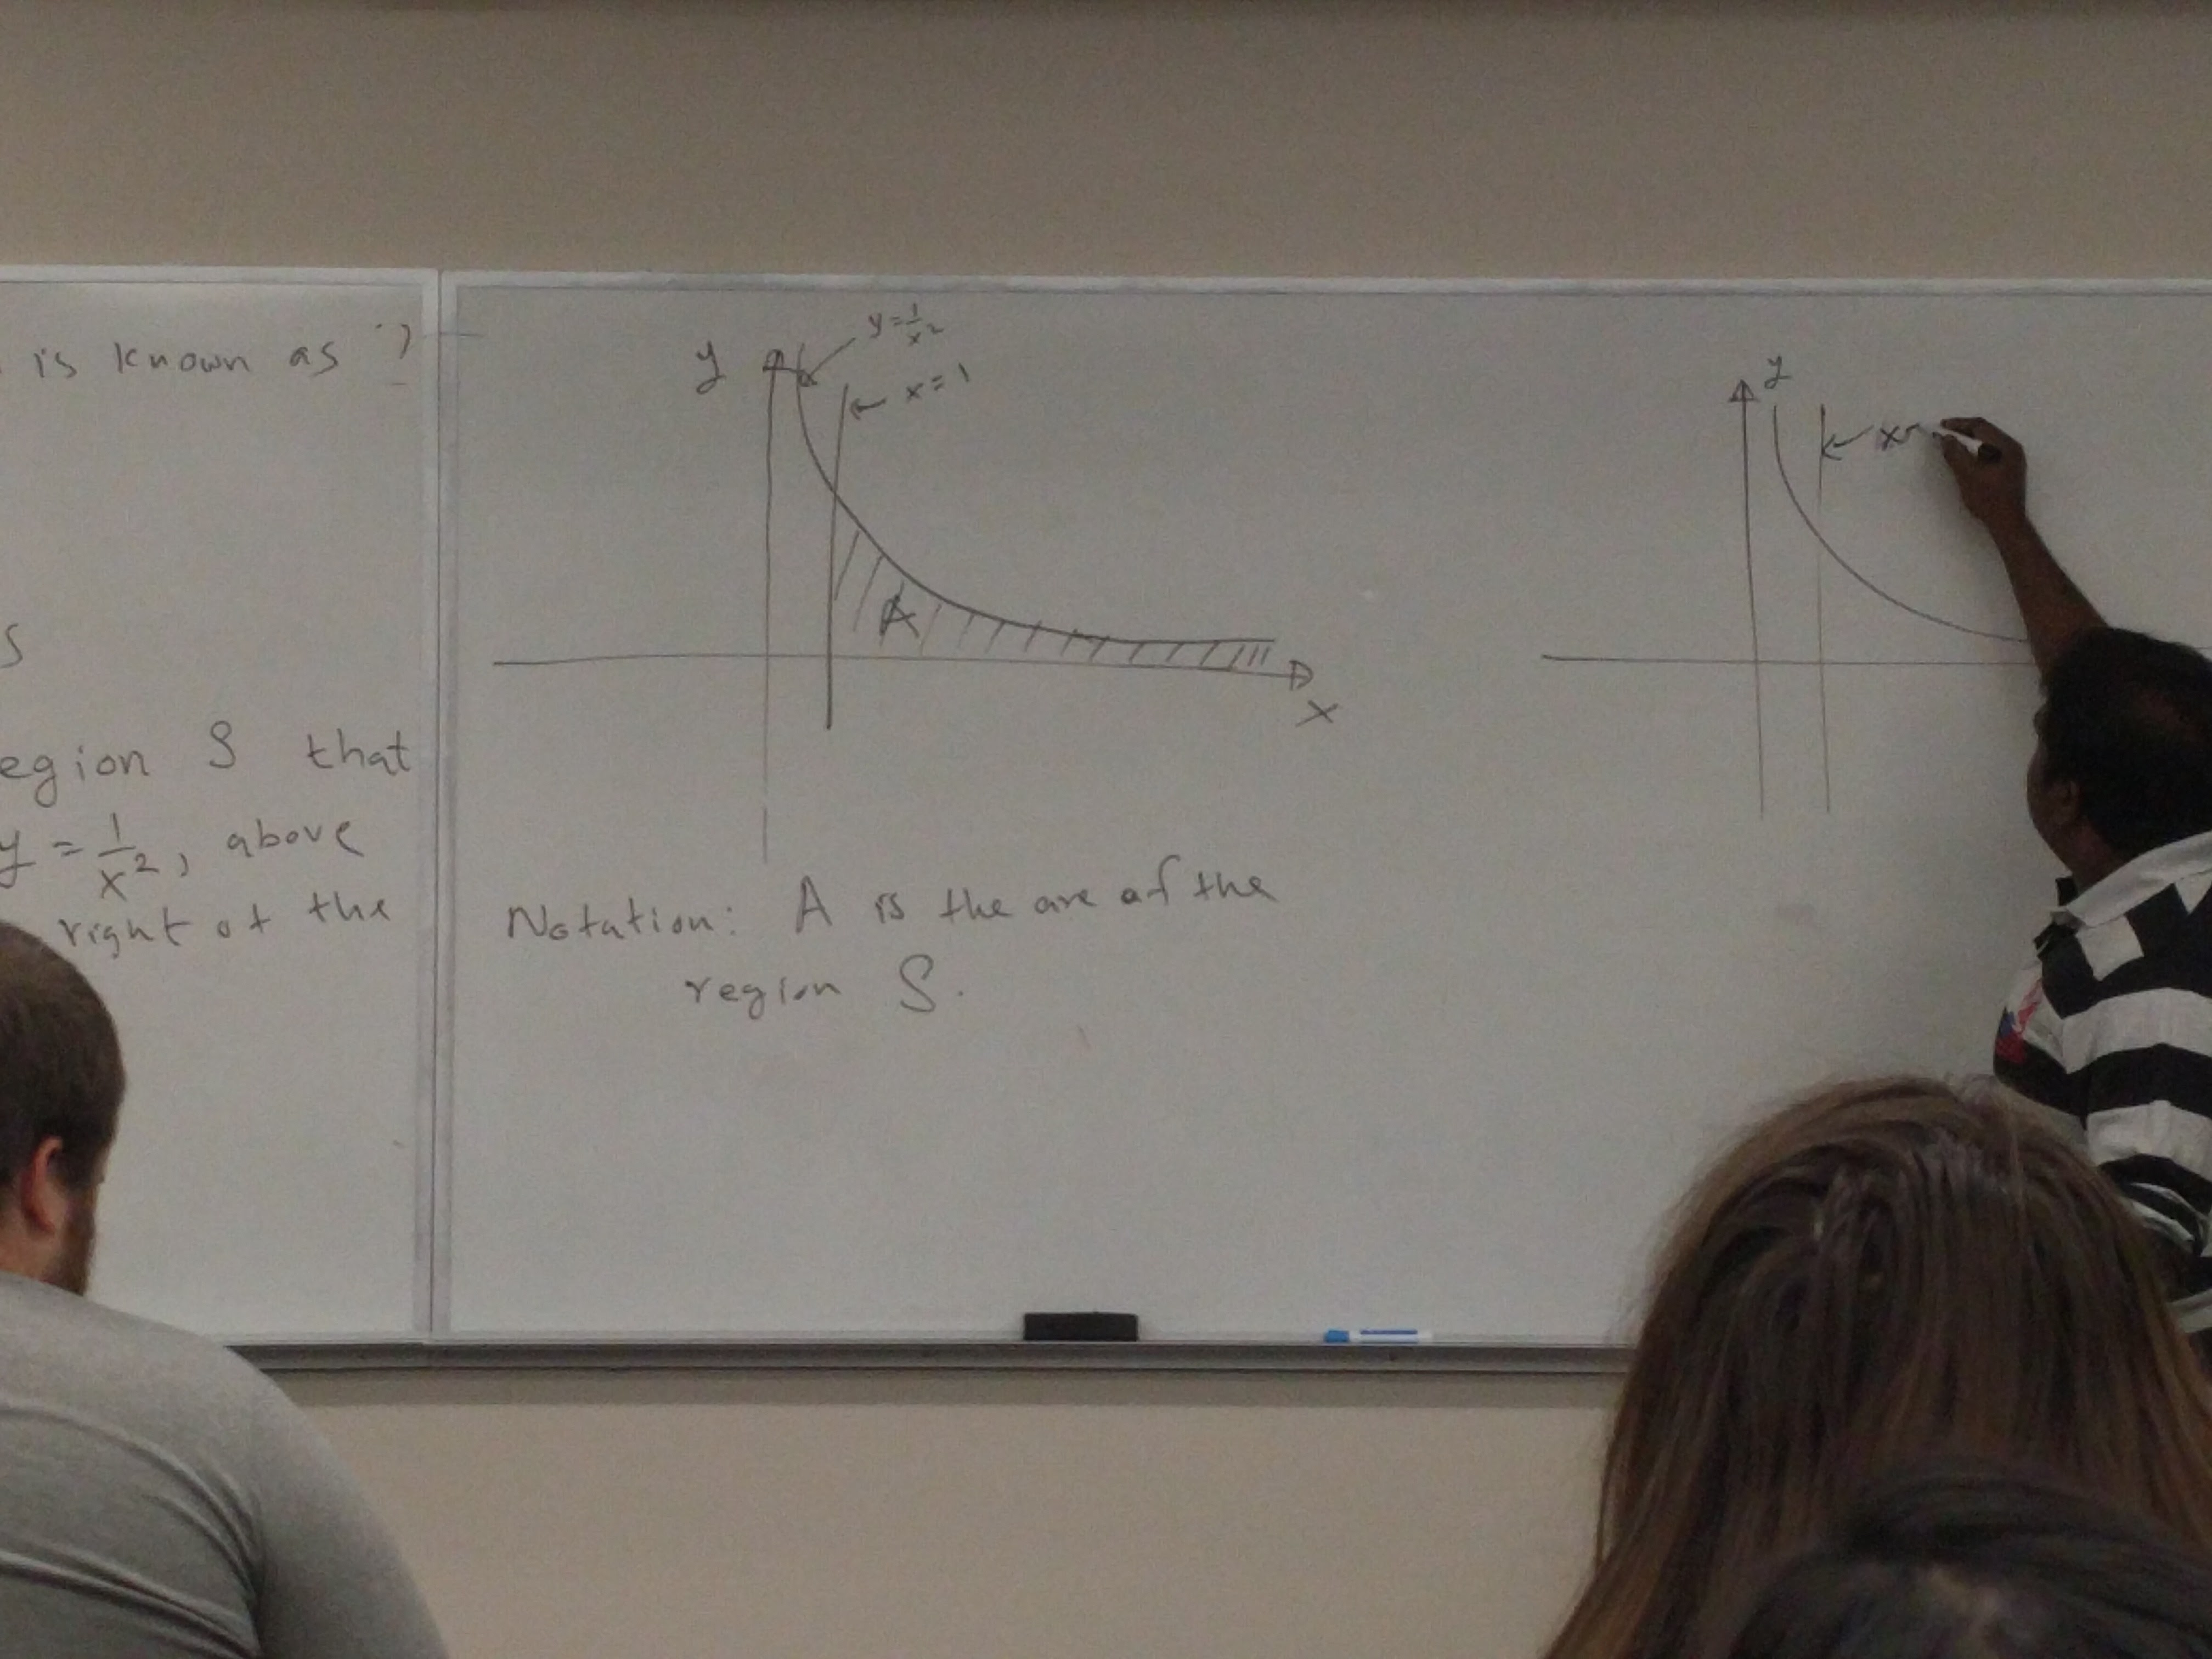 is known as ?
s
egion S that
y = 1/x², above
right of the
y
y = 1/x²
x = 1
A
x
Notation: A is the are of the
region S.
y
x